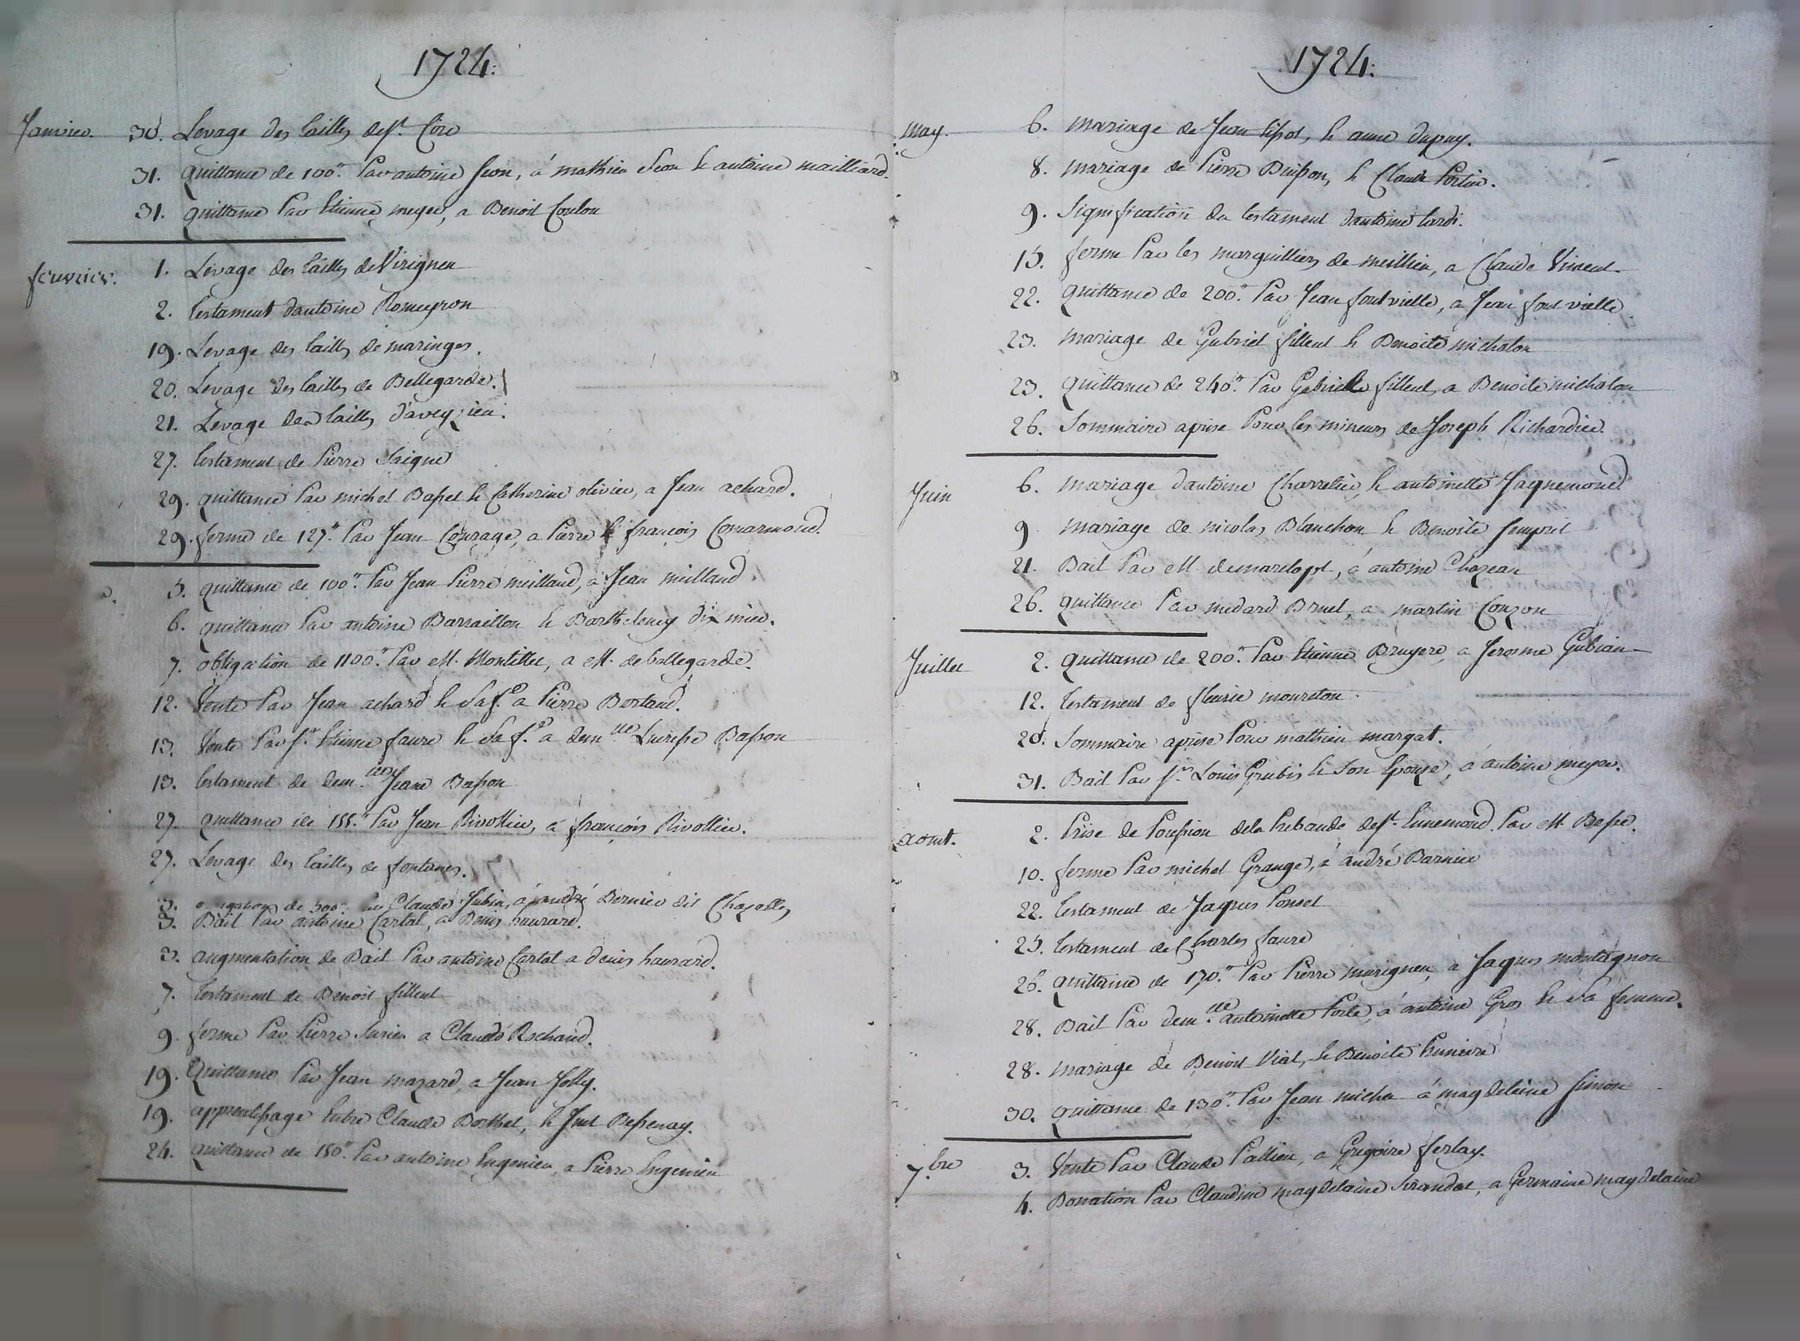 1724.
Janvier 30. Levage des tailles de St. Cire
31. quittance de 100ll. Par antoine , à mathieu & antoine mailliard.
31. quittance Par Etienne meyer, a Benoit Coulou
fevrier. 1. Levage des tailles de Virigneu
2. testament d'antoine Romeyron
19. Levage des tailles de maringes.
20. Levage des tailles de Bellegarde.
21. Levage des tailles d'aveyzieu.
27. testament de Pierre Saigne
29. quittance Par michel Basset & Catherine olivier, a Jean achard.
29. ferme de 127ll Par Jean Courage, a Pierre & françois Comarmond.
5. quittance de 100ll. Par Jean Pierre meilland, à Jean meilland
6. quittance Par antoine Barraillon & Barthelemy dixmier.
7. obligation de 1100ll. Par M. Montillet, a M. de bellegarde.
12. Vente Par Jean achard & Sa fe. a Pierre Bertaud.
13. Vente Par Sr. Etienne faure & Sa fe. a demlle Basson
13. testament de demlle Jeane Basson
27. quittance de 155ll Par Jean Rivollier, à françois Rivollier.
27. Levage des tailles de fontanes.
3. de 300ll. Par Claude Jubin, à andré Bernier dit Chazelles
3. Bail Par antoine Cartal, a Denis haurard.
3. augmentation de Bail Par antoine Cartal a denis haurard.
7. testament de Benoit filleul
9. ferme Par Pierre a Claude Rochaud.
19. Quittance Par Jean mazard, a Jean Jolly.
19. apprentissage Entre Claude Berthet, & Just Bessenay.
24. quittance de 150ll. Par antoine Engenieu, a Pierre Engenieu
1724.
may. 6. mariage de Jean , & anne dupuy.
8. mariage de Pierre Buisson, & Claude
9. Signification du testament d'antoine tardi.
15. ferme Par les marguilliers de meillieu, a Claude Vincent.
22. quittance de 200ll. Par Jean fontvielle, a Jean fontvielle.
23. mariage de Gabriel filleul & Benoite michalon
23. quittance de 240ll. Par Gabrielle filleul, a Benoite michalon
26. Sommaire aprise Pour les mineurs de Joseph Richardier.
Juin 6. mariage d'antoine Charretier, & antoinette Jaquemond
9 mariage de nicolas Blanchon & Benoite
21. Bail Par M. , à antoine Chazeau
26. quittance Par medard Bruel, a martin Couzon
Juillet 2. quittance de 200ll. Par Etienne Bruyere, a Jerosme Gubian
12. testament de fleurie moureton.
28. Sommaire aprise Pour mathieu margat.
31. Bail Par Sr. Louis Grubis & Son Epouse, à antoine meyer.
aout. 2. Prise de Possession de la Prebande de St. Ennemond. Par M. Besse.
10. ferme Par michel Grange, à andré Barnier
22. testament de Jaques Poncet
25. testament de Charles faure
26. quittance de 170ll. Par Pierre murigneu, a Jaques montagnon
28. Bail Par demlle. antoinette Porte, à antoine Gros & Sa femme.
28. mariage de Benoit Vial, & Benoite
30. quittance de 130ll. Par Jean micha à magdeleine Simon
7.bre 3. Vente Par Claude Pallieu, a Grégoire ferlay.
4. Donation Par Claudine magdelaine , a Germaine magdelaine